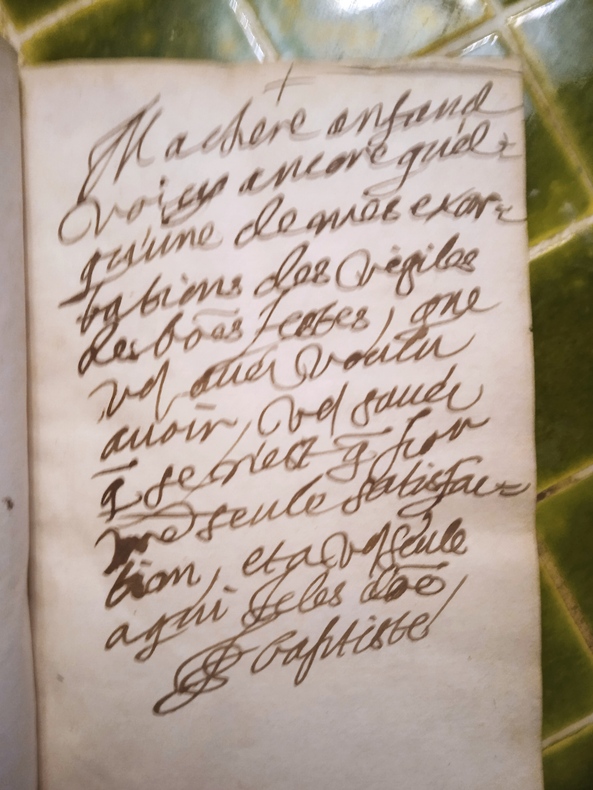 +
Ma chere enfand
Voicy ancore quel=
qu'une de mes exor=
tations des vėgiles
des bo͞es festes, que
vo9 aués voulu
auoir, vo9 saués
q̄ se n'est q̄ por
me seule satisfac=
tion, et a vo9 seule
a qui je les doē
baptiste